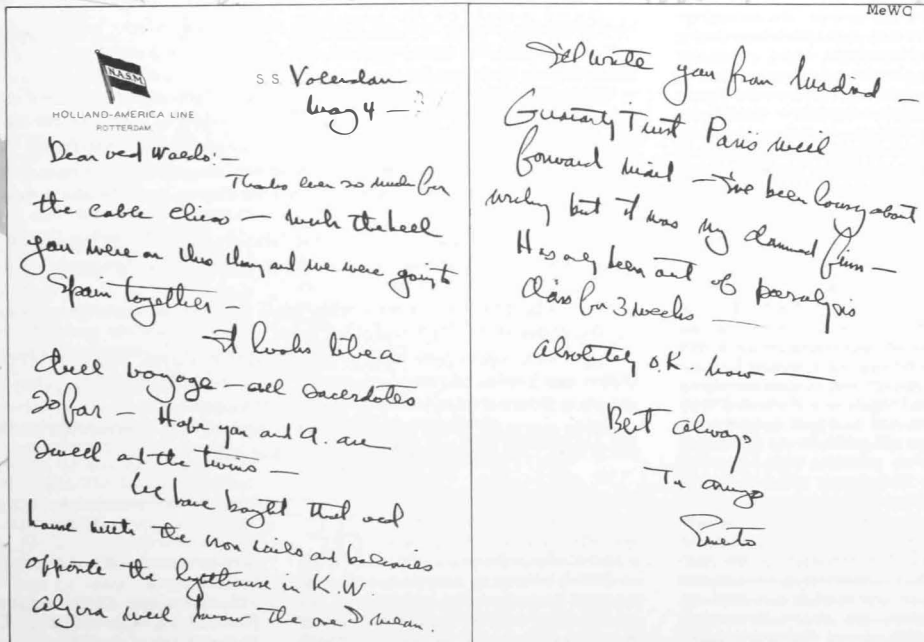 MeWC
N.A.S.M.
HOLLAND-AMERICA LINE
ROTTERDAM.
S.S. Volendam
May 4 —
Dear old Waldo:—
Thanks ever so much for
the cable chico — wish the hell
you were on this thing and we were going to
Spain together —
It looks like a
dull voyage — all sacerdotes
so far — Hope you and A. are
swell and the twins —
We have bought that old
house with the iron rails and balconies
opposite the lighthouse in K.W.
Algera will know the one I mean.
I'll write you from Madrid —
Guaranty Trust Paris will
forward mail — I've been lousy about
writing but it was my damned arm —
Has only been out of paralysis
class for 3 weeks —
Absolutely O.K. now
Best always
Tu amigo
Ernesto